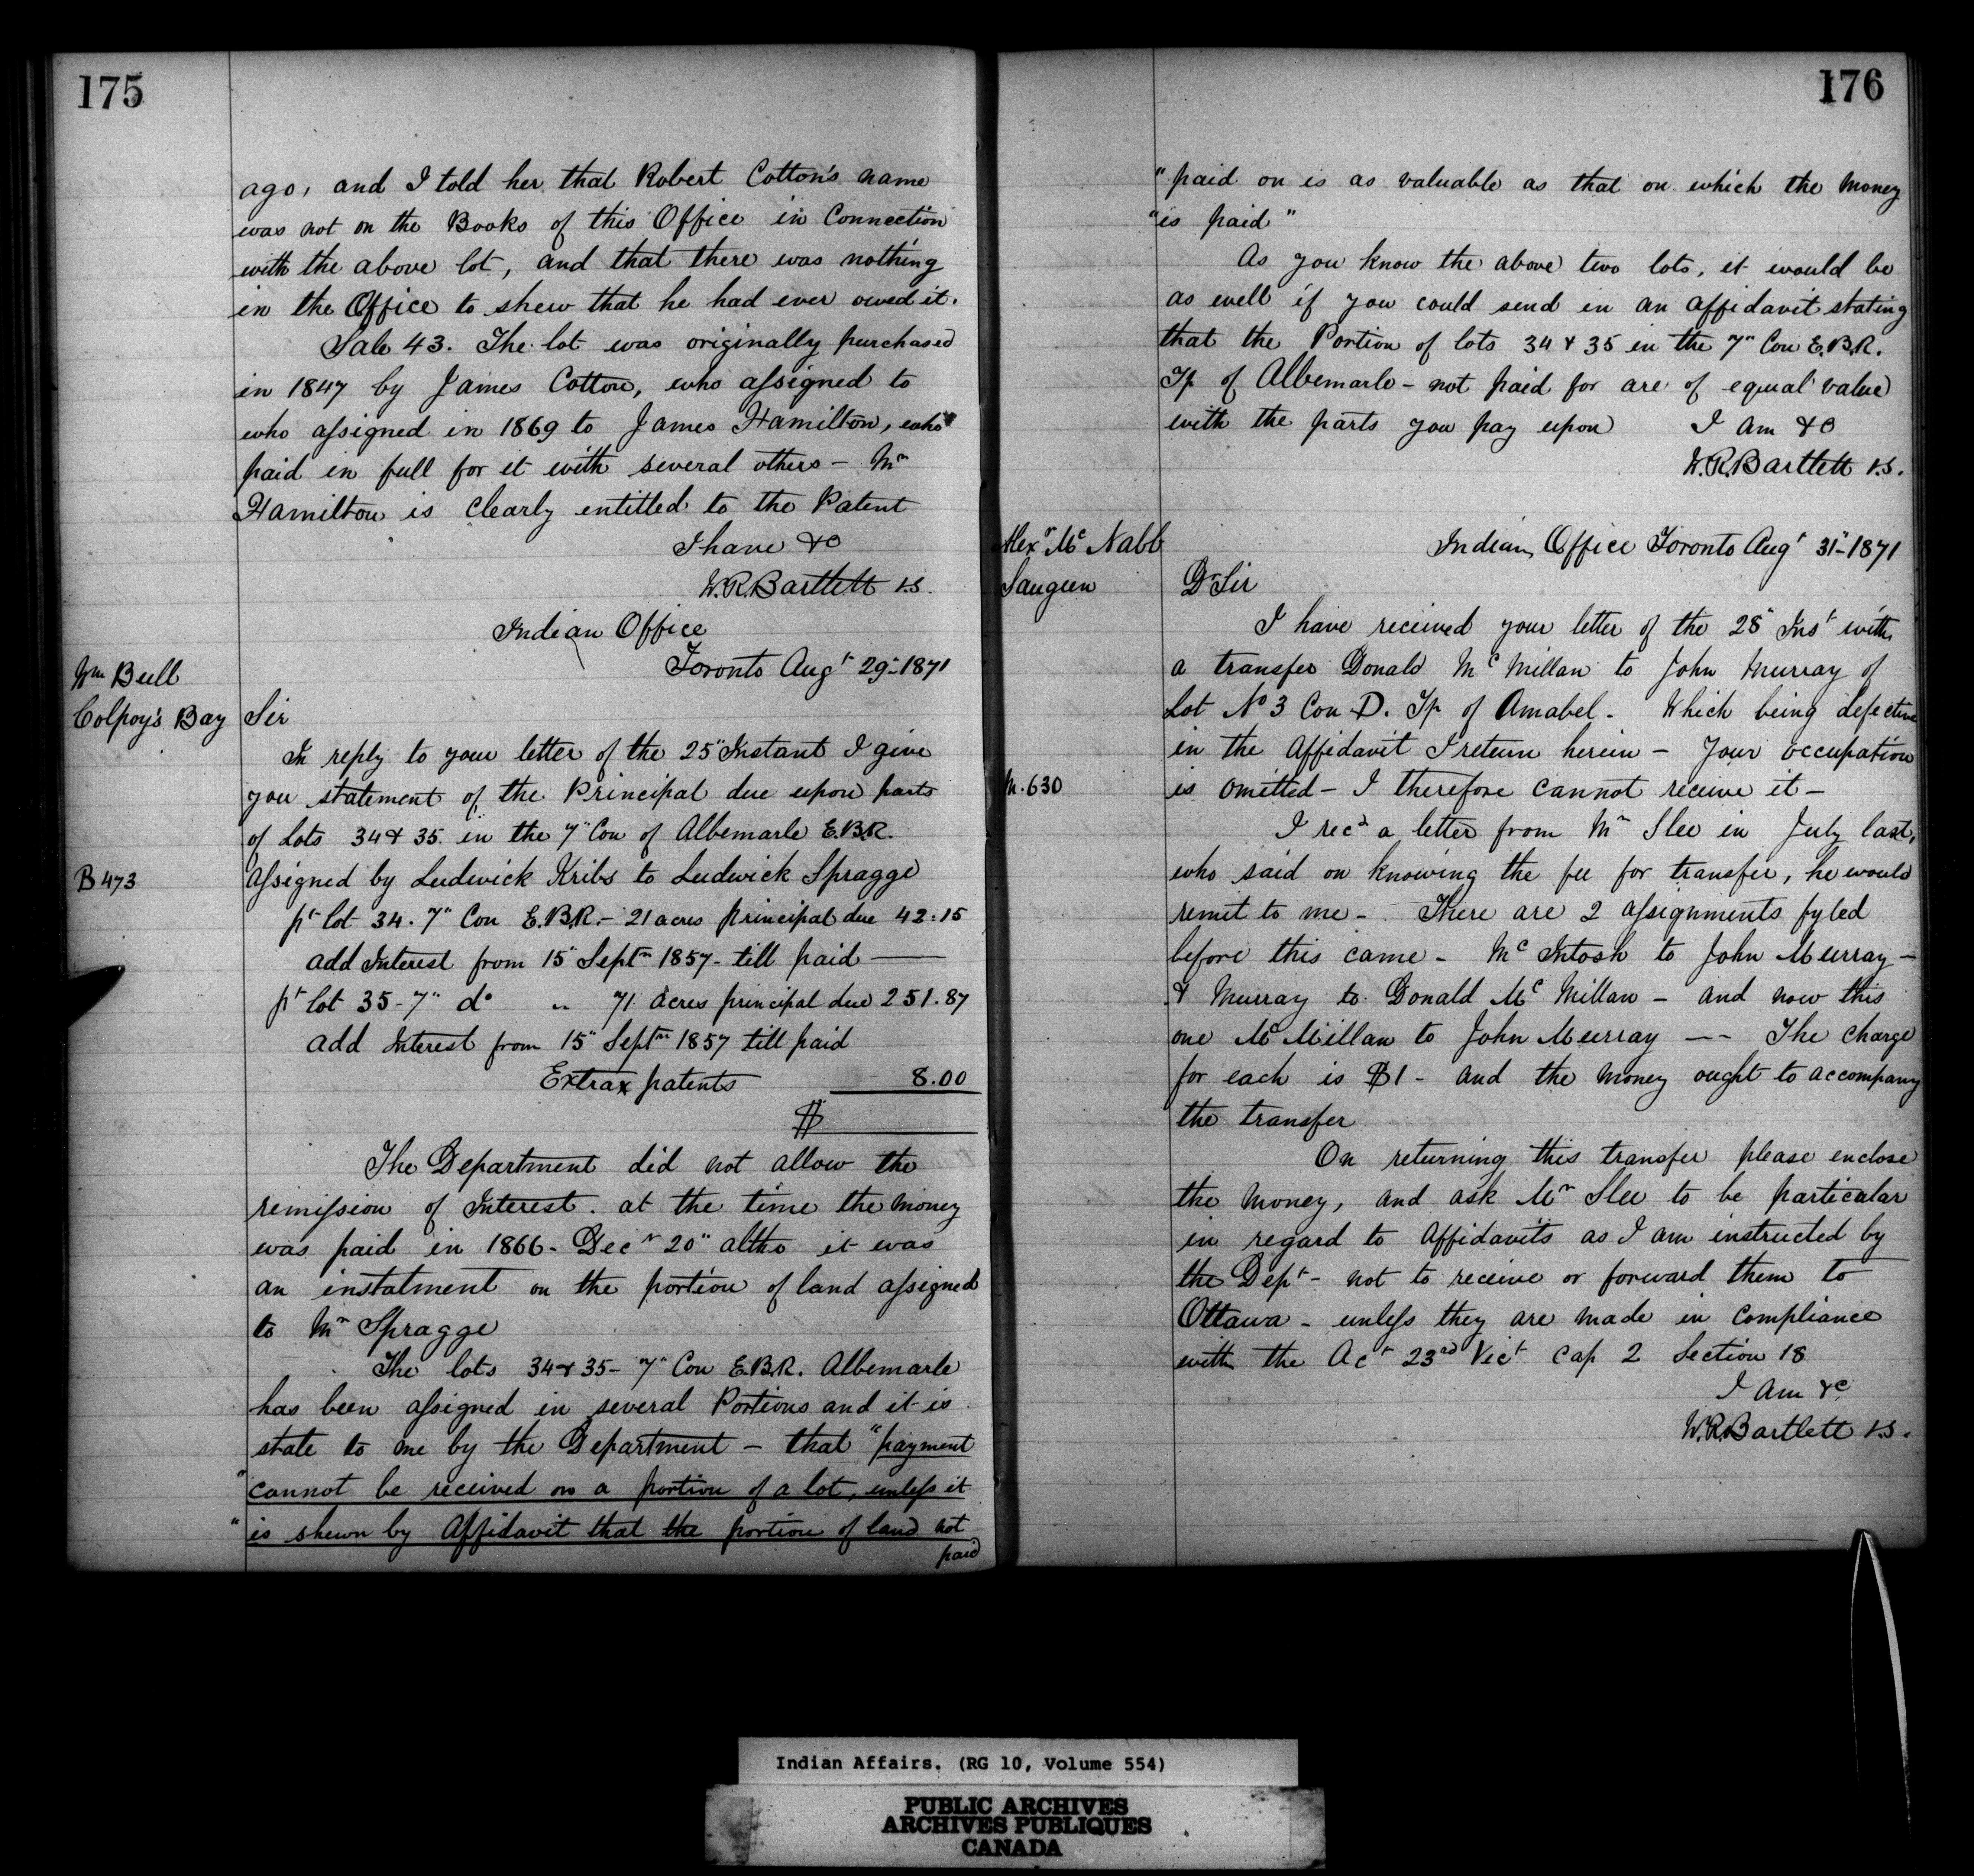 175
ago, and I told her that Robert Cotton's name
was not on the Books of this Office in Connection
with the above lot, and that there was nothing
in the Office to shew that he had ever owed it.
Sale 43. The lot was originally purchased
in 1847 by James Cotton, who assigned to
who assigned in 1869 to James Hamilton, who
paid in full for it with several others – Mr
Hamilton is clearly entitled to the Patent
I have &c
W.R. Bartlett V.S.
Indian Office
Toronto Augt 29- 1871
Wm Bull
Colpoy's Bay
Sir
In reply to your letter of the 25" Instant I give
you statement of the Principal due upon parts
of Lots 34 & 35 in the 7" Con of Albemarle E.B.R.
B 473
assigned by Ludwick Kribs to Ludwick Spragge
pt lot 34. 7" Con E.B.R. – 21 acres principal due 42.15
add Interest from 15" Septr 1857 – till paid ——
pt lot 35 – 7" do " 71 acres principal due 251.87
add Interest from 15" Septr 1857 till paid
Extra patents 8.00
$
The Department did not allow the
remission of Interest. at the time the money
was paid in 1866 – Decr 20" altho it was
an instalment on the portion of land assigned
to Mr Spragge
The lots 34 & 35 – 7" Con E.B.R. Albemarle
has been assigned in several Portions and it is
state to me by the Department – that "payment
"cannot be received on a portion of a lot, unless it
"is shewn by Affidavit that the portion of land not
paid
176
"paid on is as valuable as that on which the money
"is paid"
As you know the above two lots, it would be
as well if you could send in an affidavit stating
that the Portion of lots 34 & 35 in the 7" Con E.B.R.
Tp of Albemarle – not paid for are of equal value
with the parts you pay upon I am &c
W.R. Bartlett V.S.
Alexr McNabb
Saugeen
Indian Office Toronto Augt 31"- 1871
Dr Sir
I have received your letter of the 28" Inst with
a transfer Donald McMillan to John Murray of
Lot No 3 Con D. Tp of Amabel – Which being defective
in the Affidavit I return herein – Your occupation
M. 630
is omitted – I therefore cannot receive it –
I recd a letter from Mr Slee in July last,
who said on knowing the fee for transfer, he would
remit to me – There are 2 assignments fyled
before this came – McIntosh to John Murray –
& Murray to Donald McMillan – and now this
one McMillan to John Murray –– The charge
for each is $1 – and the money ought to accompany
the transfer
On returning this transfer please enclose
the money, and ask Mr Slee to be particular
in regard to Affidavits as I am instructed by
the Dept – not to receive or forward them to
Ottawa – unless they are made in compliance
with the Act 23rd Vict Cap 2 Section 18
I am &c
W.R. Bartlett V.S.
Indian Affairs. (RG 10, Volume 554)
PUBLIC ARCHIVES
ARCHIVES PUBLIQUES
CANADA